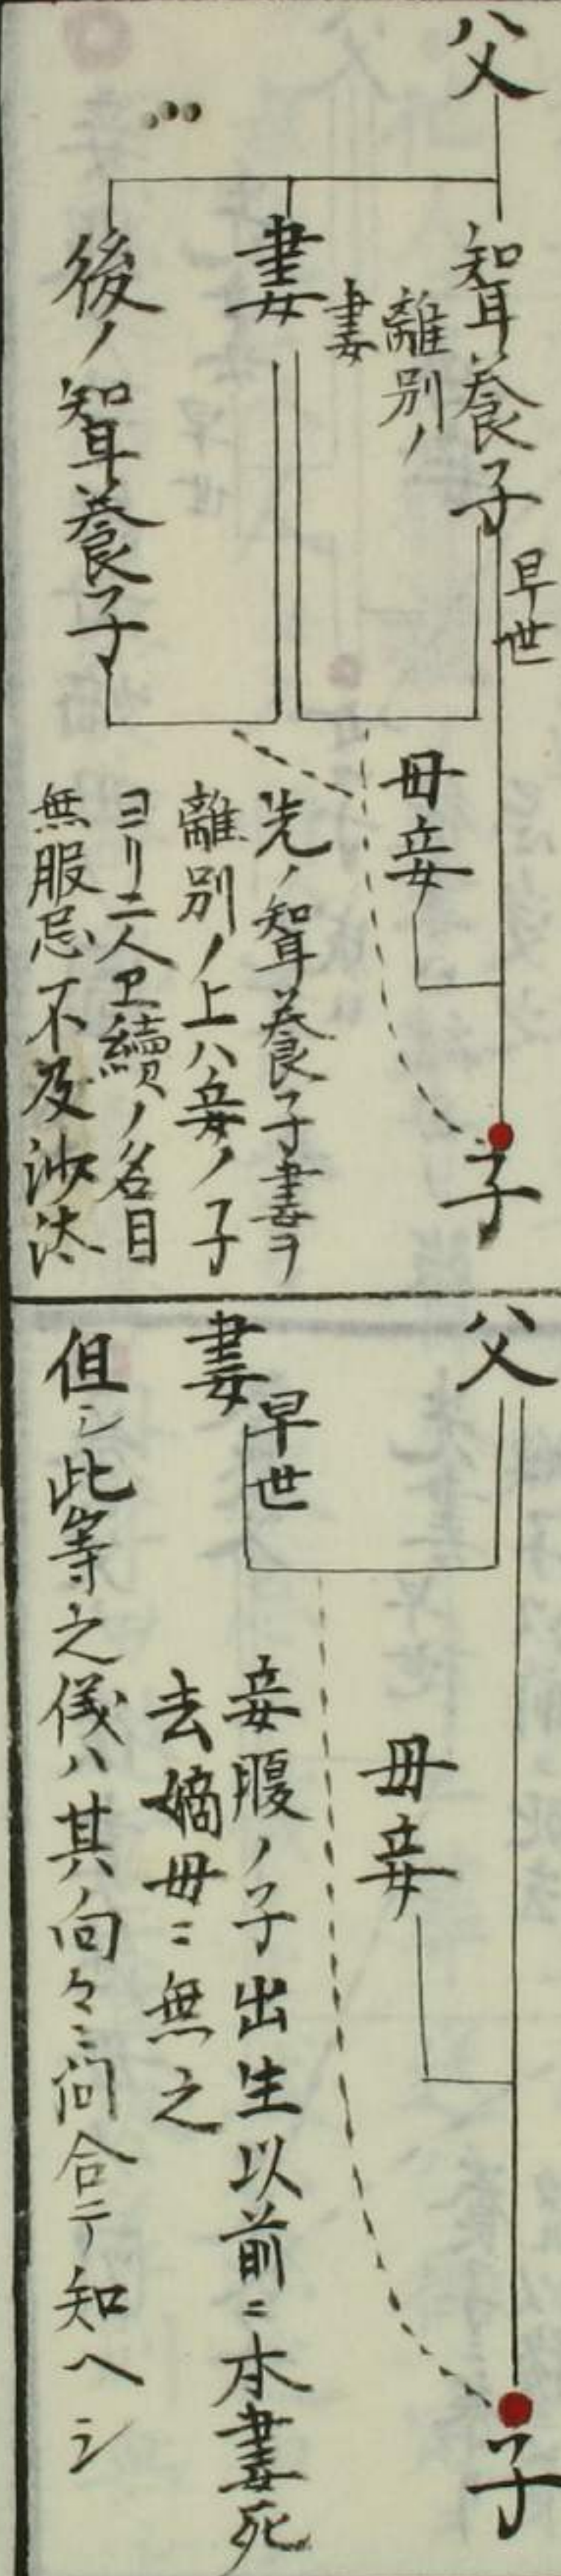 父
聟養子
早世
離別ノ
妻
妻
後ノ聟養子
母妾
子
先ノ聟養子妻ヲ
離別ノ上ハ妾ノ子
ヨリ二人卫續ノ名目
無服忌不及沙汰
父
妻
早世
母妾
子
妾腹ノ子出生以前ニ本妻死
去嫡母ニ無之
但シ此等之儀ハ其向々ニ問合テ知ヘシ